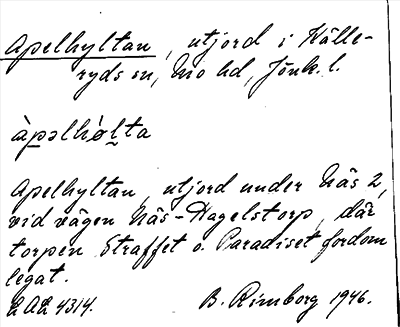 Apelhyltan, utjord i Källe-
ryds sn, Mo hd, Jönk. l.
àpəlhølta
Apelhyltan, utjord under Näs 2,
vid vägen Näs-Hagelstorp, där
torpen Straffet o. Paradiset fordom
legat.
LAL 4314. B. Rimborg 1946.